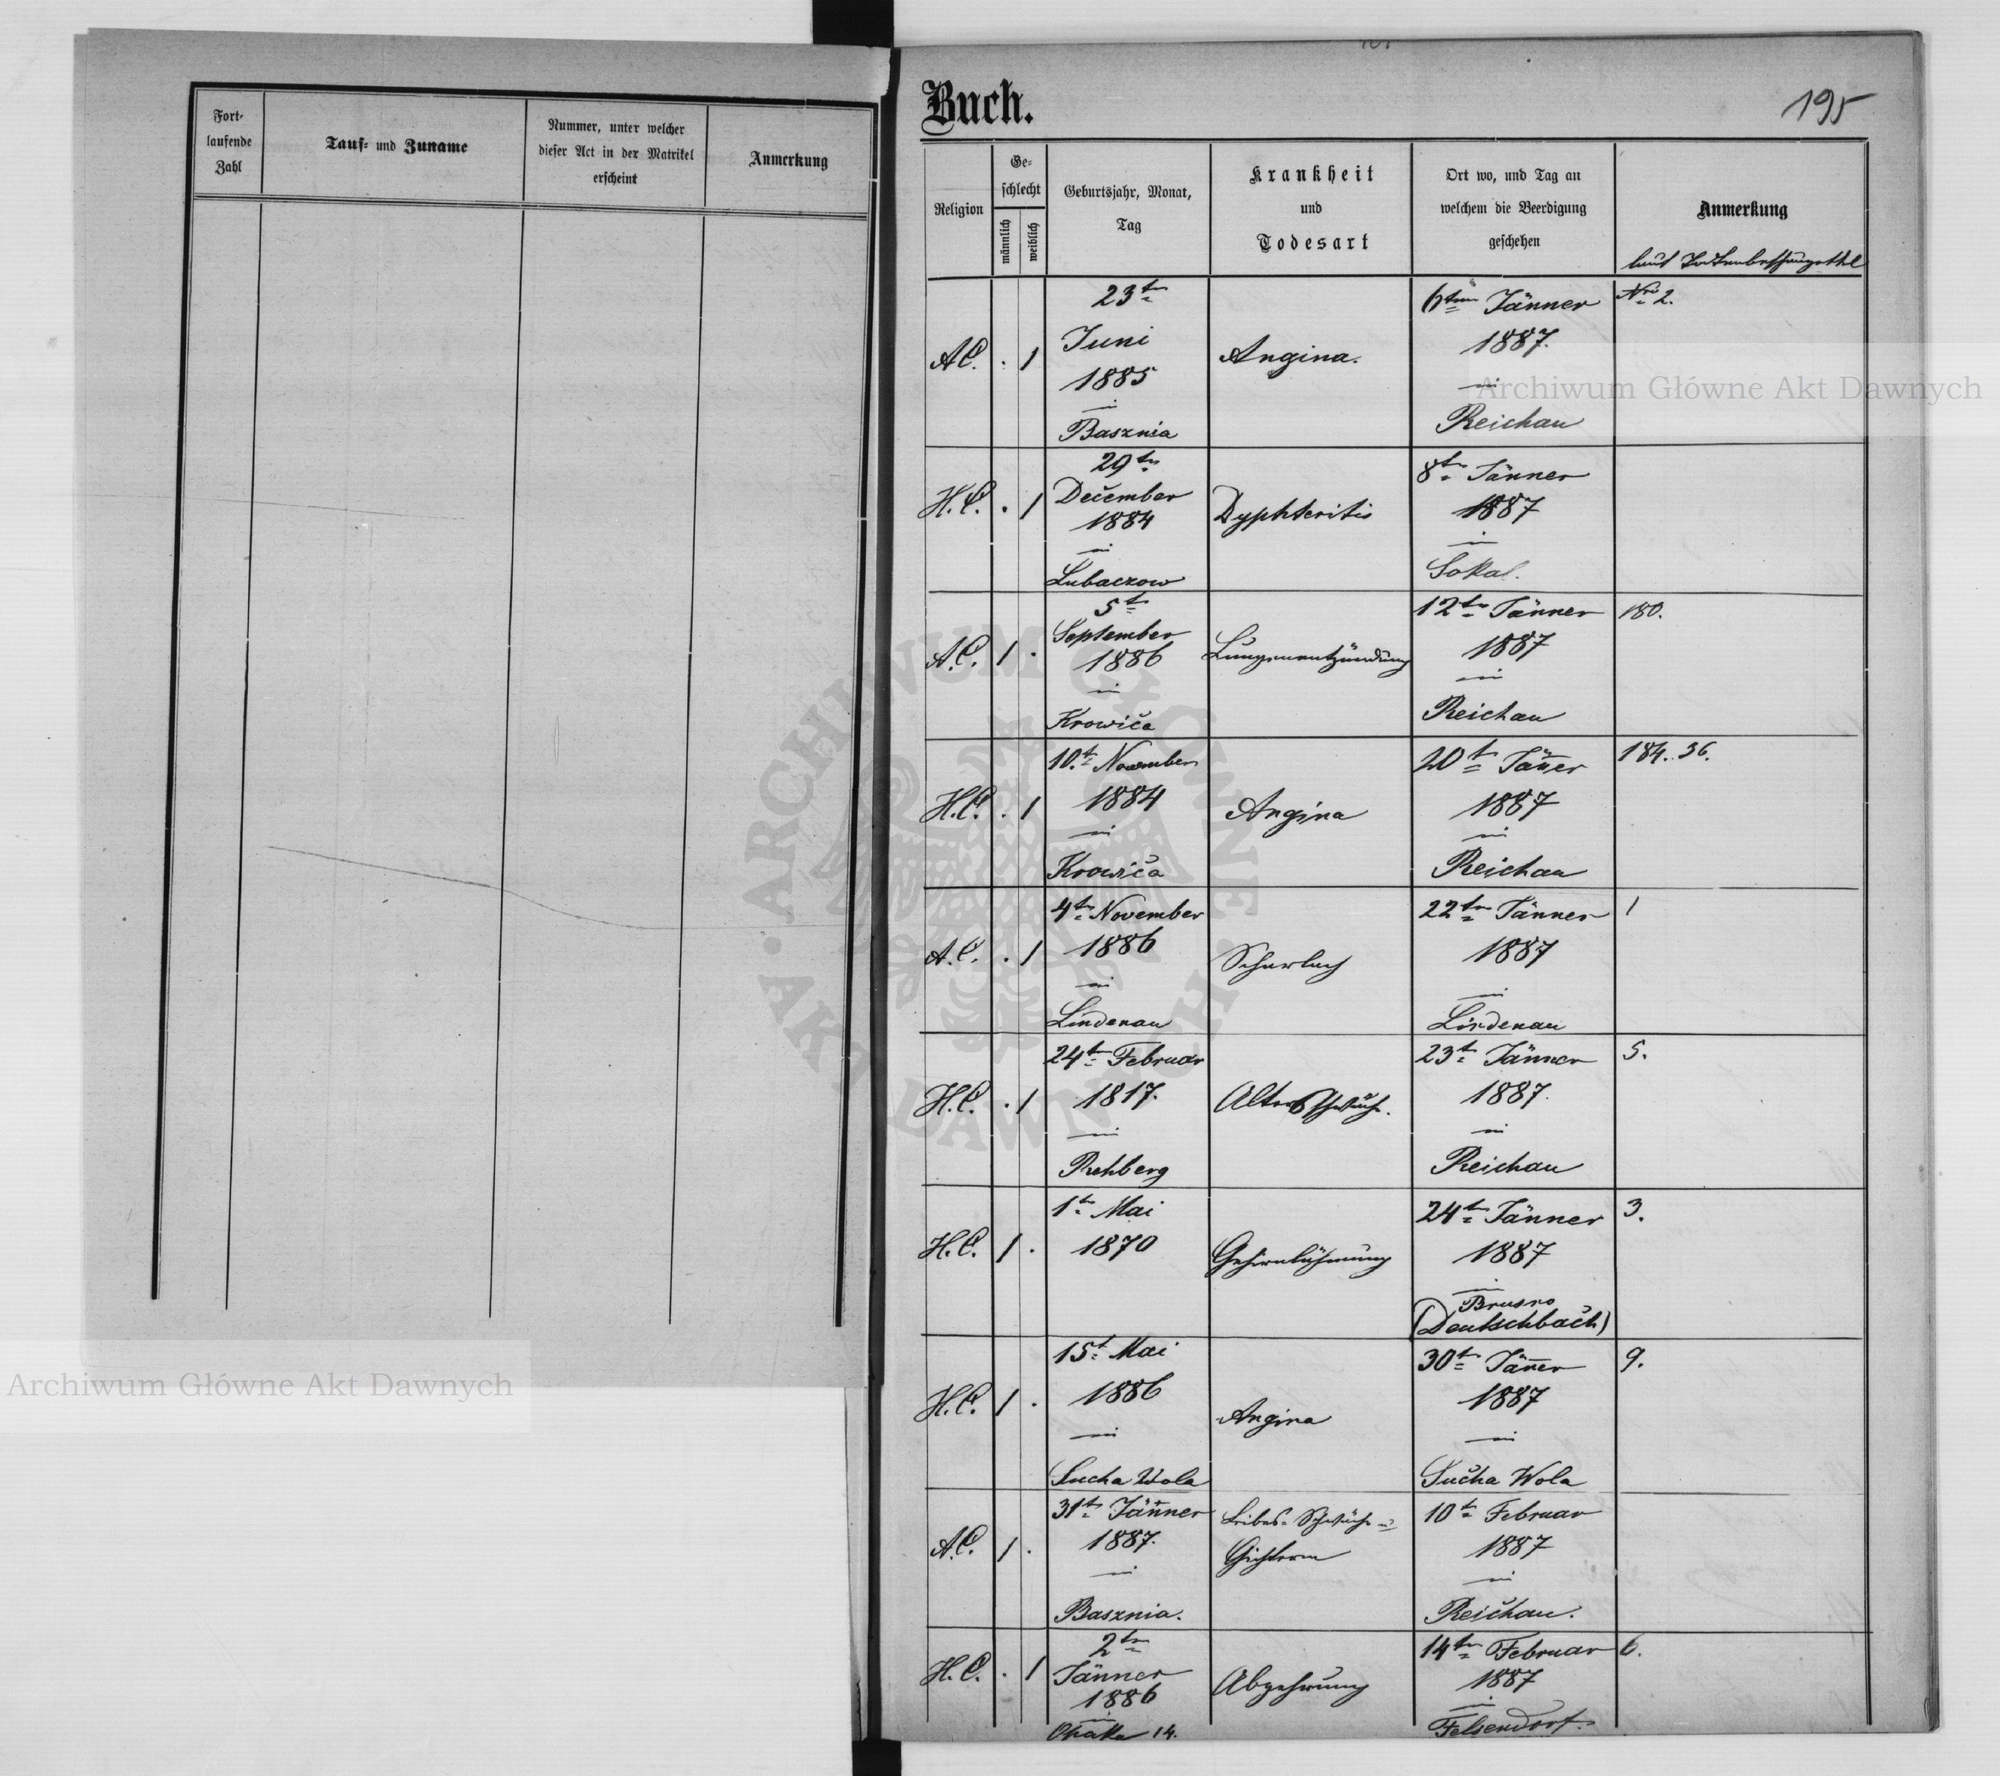 Fort-
laufende
Zahl
Tauf- und Zuname
Nummer, unter welcher
dieser Act in der Matrikel
erscheint
Anmerkung
Buch.
195
Religion
Ge-
schlecht
männlich
weiblich
Geburtsjahr, Monat,
Tag
Krankheit
und
Todesart
Ort wo, und Tag an
welchem die Beerdigung
geschehen
Anmerkung
laut
A.C. . 1
23tn
Juni
1885
in
Basznia
Angina.
6ten Jänner
1887.
in
Reichau
Nro 2.
H.C. . 1
29tn
December
1884
in
Lubaczow
Dyphteritis
8tn Jänner
1887
in
Sokal.
A.C. 1 .
5tn
September
1886
in
Krowica
Lungenentzündung
12tn Jänner
1887
in
Reichau
180.
H.C. . 1
10.tn November
1884
in
Krowica
Angina
20tn Jäner
1887
in
Reichau
184. 36.
A.C. . 1
4tn November
1886
in
Lindenau
Scharlach
22tn Jänner
1887
in
Lindenau
1
H.C. . 1
24tn Februar
1817.
in
Rehberg
Altersschwäche.
23tn Jänner
1887.
in
Reichau
5.
H.C. 1 .
1tn Mai
1870
Gehirnlähmung
24tn Jänner
1887
in
Brusno
(Deutschbach)
3.
H.C. 1 .
15tn Mai
1886
in
Sucha Wola
Angina
30tn Jäner
1887
in
Sucha Wola
9.
A.C. 1 .
31tn Jänner
1887.
in
Basznia.
Leibes-Schwäche u
Gichtern
10tn Februar
1887
in
Reichau.
H.C. . 1
2tn
Jänner
1886
in
14.
Abzehrung
14tn Februar
1887
in
Felsendorf.
6.
Archiwum Główne Akt Dawnych
Archiwum Główne Akt Dawnych
ARCHIWUM GŁÓWNE AKT DAWNYCH